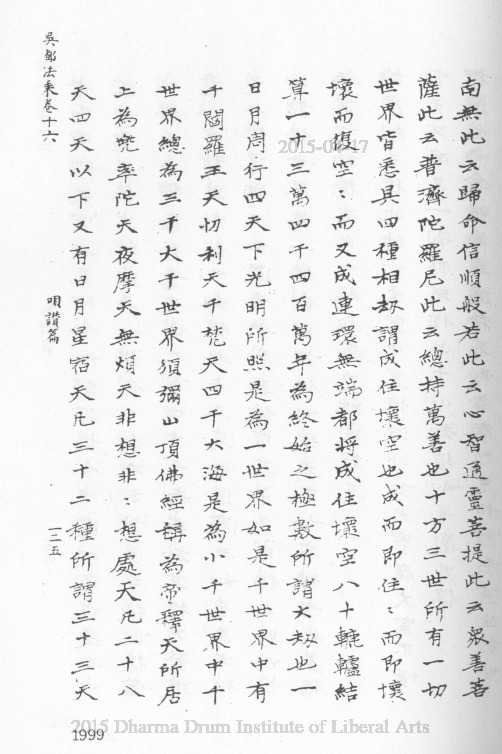 南無此云歸命信順般若此云心智通靈菩提此云眾善菩
薩此云普濟陀羅尼此云總持萬善也十方三世所有一切
世界皆悉具四種相劫謂成住壞空也成而即住〻而即壞
壞而復空〻而又成連環無端都將成住壞空八十轆轤結
算一十三萬四千四百萬年為終始之極數所謂大劫也一
日月周行四天下光明所照是為一世界如是千世界中有
千閻羅王天忉利天千梵天四千大海是為小千世界中千
世界總為三千大千世界須彌山頂佛經稱為帝釋天所居
上為兜率陀天夜摩天無煩天非想非〻想處天凡二十八
天四天以下又有日月星宿天凡三十二種所謂三十三天
吳都法乘卷十六
唄讚篇
一二五
1999
2015-04-17
2015 Dharma Drum Institute of Liberal Arts